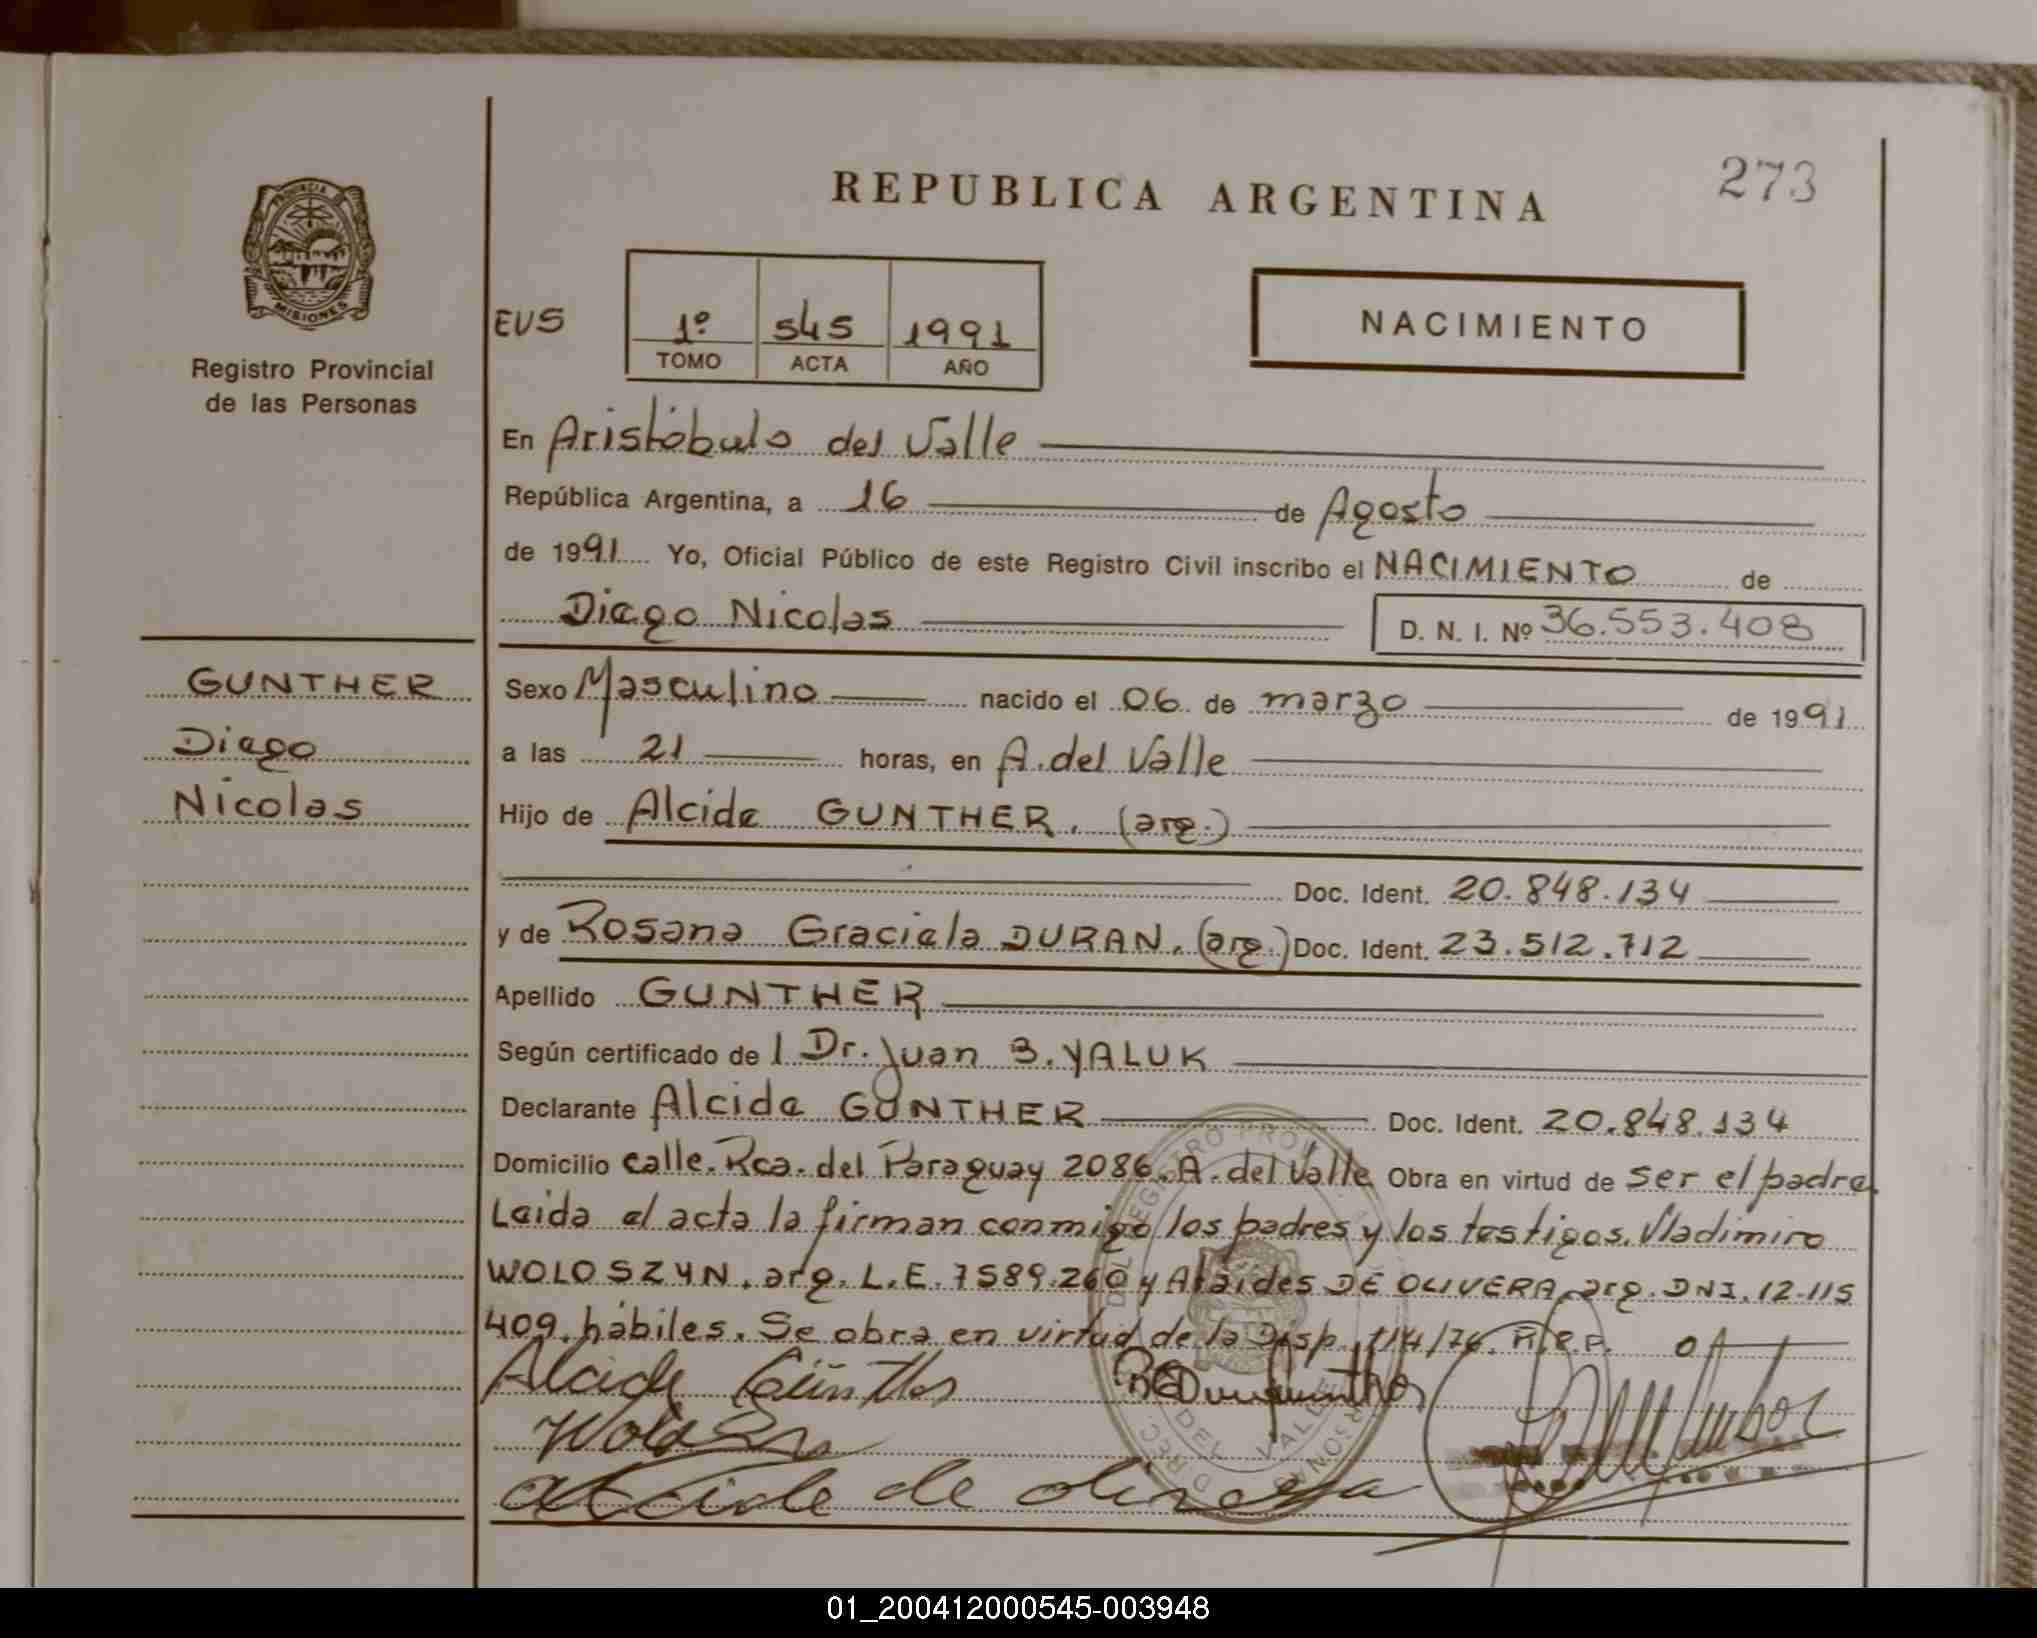 273
REPUBLICA ARGENTINA
PROVINCIA
MISIONES
Registro Provincial
de las Personas
EVS
1º 545 1991
TOMO ACTA AÑO
NACIMIENTO
En Aristóbulo del Valle
República Argentina, a 16 de Agosto
de 1991 Yo, Oficial Público de este Registro Civil inscribo el NACIMIENTO de
Diego Nicolas D. N. I. Nº 36.553.408
GUNTHER
Diego
Nicolas
Sexo Masculino nacido el 06 de marzo de 1991
a las 21 horas, en A. del Valle
Hijo de Alcide GUNTHER. (arg.)
Doc. Ident. 20.848.134
y de Rosana Graciela DURAN. (arg.) Doc. Ident. 23.512.712
Apellido GUNTHER
Según certificado de l Dr. Juan B. YALUK
Declarante Alcide GUNTHER Doc. Ident. 20.848.134
Domicilio calle. Rca. del Paraguay 2086. A. del Valle Obra en virtud de ser el padre.
Leida el acta la firman conmigo los padres y los testigos. Vladimiro
WOLOSZYN. arg. L.E. 7589.260 y Alaides DE OLIVERA arg. DNI. 12.115
409. hábiles. Se obra en virtud de la Disp. 114/76. R.P.P.
Alcide Günther
alcide de olivera
01_200412000545-003948